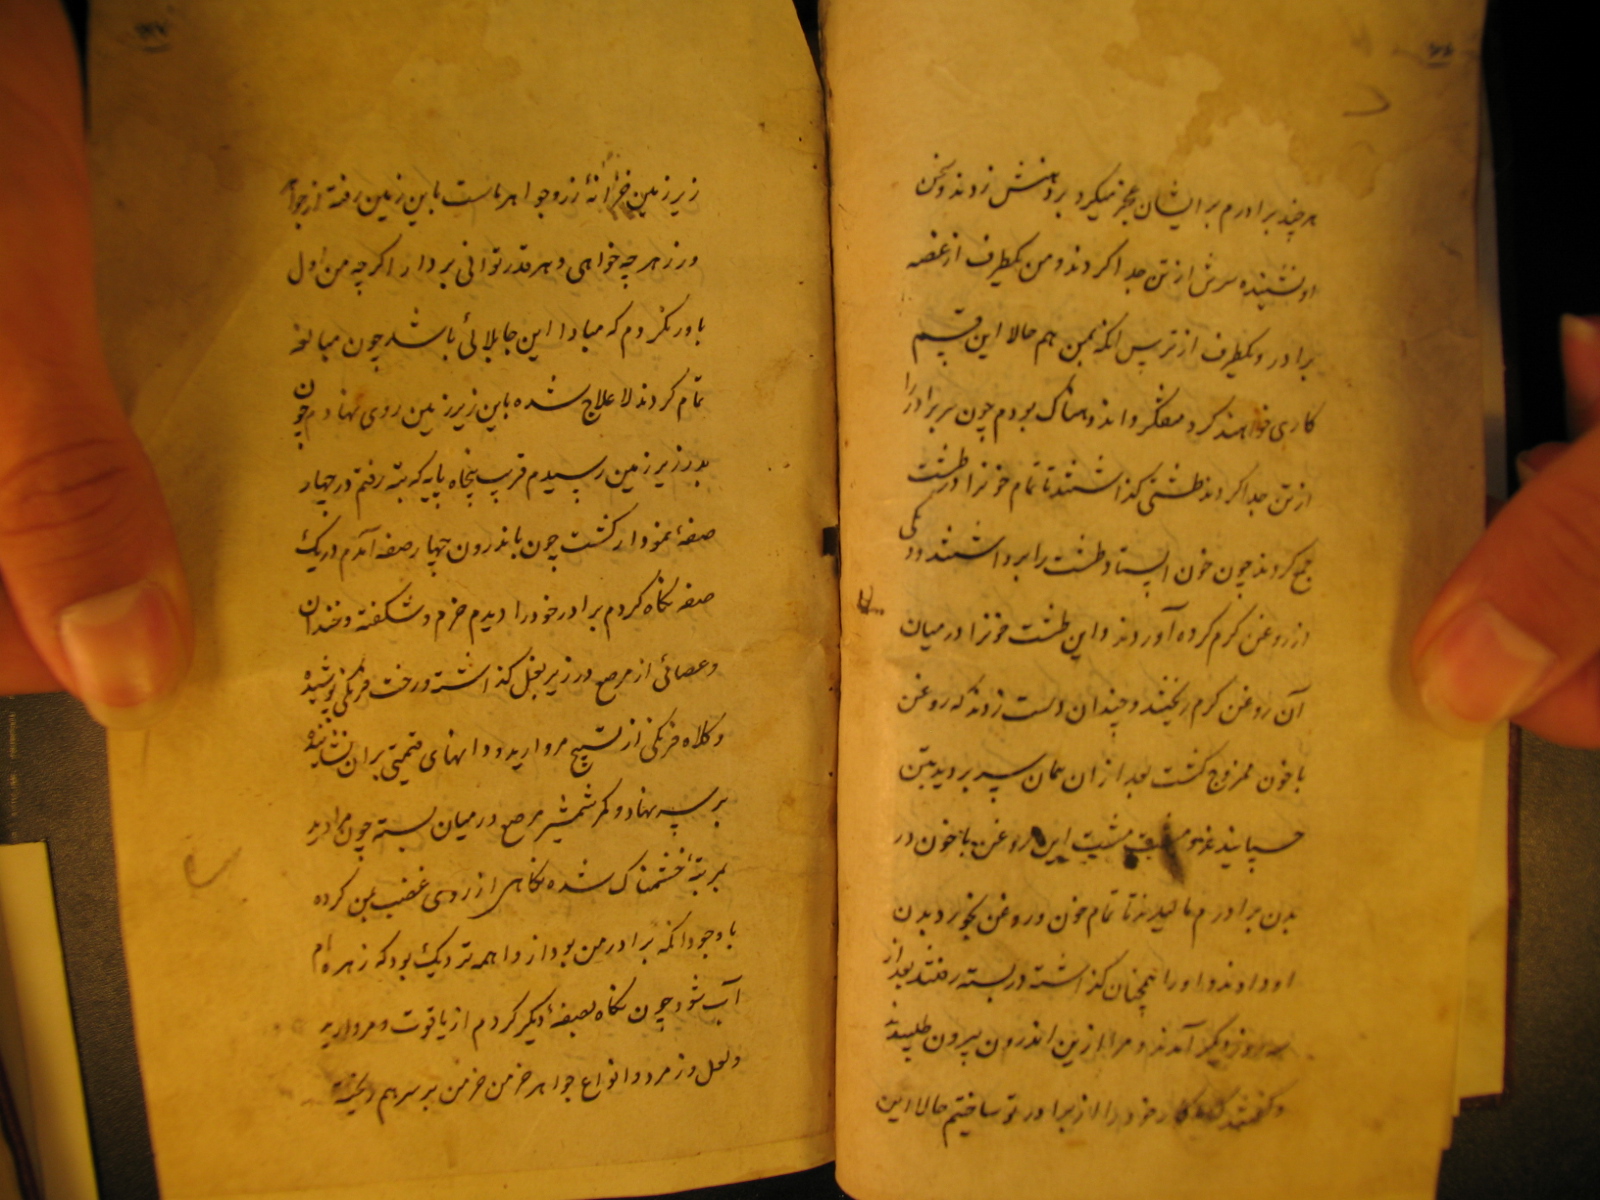 هر چند برادرم برایشان عجز میکرد بر دهنش زدند و سخن
او نشنیده سرش از تن جدا کردند و من یکطرف از غصه
برادر و یکطرف از ترس آنکه بمن هم حالا این قسم
کاری خواهند کرد متفکر و اندوهناک بودم چون سر برادر را
از تن جدا کردند طشتی گذاشتند تا تمام خونرا در طشت
جمع کردند چون خون ایستاد طشت را برداشتند و دیگی
از روغن گرم کرده آوردند و این طشت خونرا در میان
آن روغن گرم ریختند و چندان دست زدند که روغن
با خون ممزوج گشت بعد از ان همان سر بریده بتن
چسپانیدند و مشت مشت این روغن با خون در
بدن برادرم مالیدند تا تمام خون و روغن بخورد بدن
او دادند و او را همچنان گذاشته در بسته رفتند بعد از
سه روز دیگر آمدند و مرا ازین اندرون بیرون طلبیدند
و گفتند که ما کار خود را از برادر تو ساختیم حالا این
زیر زمین خزانهٔ زر و جواهر ماست باین زیرزمین رفته از جواهر
و زر هر چه خواهی و هر قدر توانی بردار اگرچه من اول
باور نکردم که مبادا این جا بلائی باشد چون مبالغه
تمام کردند لاعلاج شده باین زیر زمین روی نهادم چون
بدر زیر زمین رسیدم قریب پنجاه پایه که بته رفتم در چهار
صفهٔ نمودار گشت چون باندرون چهار صفه آمدم در یک
صفه نگاه کردم برادر خود را دیدم خرم و شکفته و خندان
و عصائی از مرصع در زیر بغل گذاشته و رخت فرنگی پوشیده
و کلاه فرنگی از تسبیح مروارید و دانهای قیمتی بران نشانیده
بر سر نهاد و کمر شمشیر مرصع در میان بسته چون مرا دید
بمرتبهٔ خشمناک شده نگاهی از روی غضب بمن کرده
با وجود آنکه برادر من بود از واهمه نزدیک بود که زهره ام
آب شود چون نگاه بصفهٔ دیگر کردم از یاقوت و مروارید
و لعل و زمرد و انواع جواهر خرمن خرمن بر سر هم ریخته